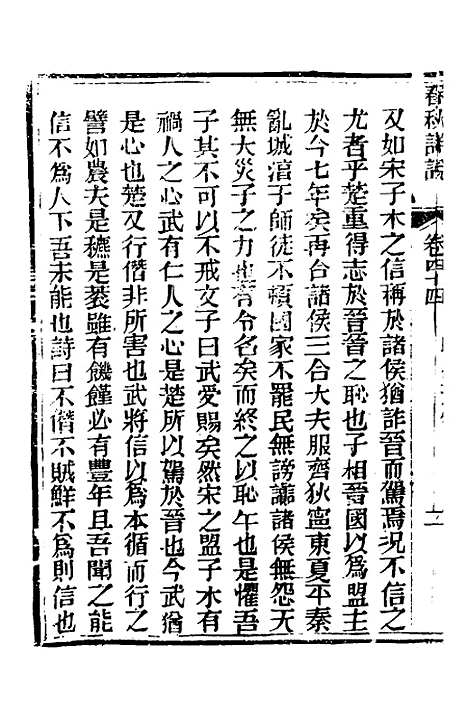 又如宋子木之信稱於諸侯猶詐晉而駕焉況不信之
尤者乎楚重得志於晉晉之恥也子相晉國以爲盟主
於今七年矣再合諸侯三合大夫服齊狄寧東夏平秦
亂城淳于師徒不頓國家不罷民無謗讟諸侯無怨天
無大災子之力也有令名矣而終之以恥午也是懼吾
子其不可以不戒文子曰武受賜矣然宋之盟子木有
禍人之心武有仁人之心是楚所以駕於晉也今武猶
是心也楚又行僭非所害也武將信以爲本循而行之
譬如農夫是穮是蔉雖有饑饉必有豐年且吾聞之能
信不爲人下吾未能也詩曰不僭不賊鮮不爲則信也
卷四十四